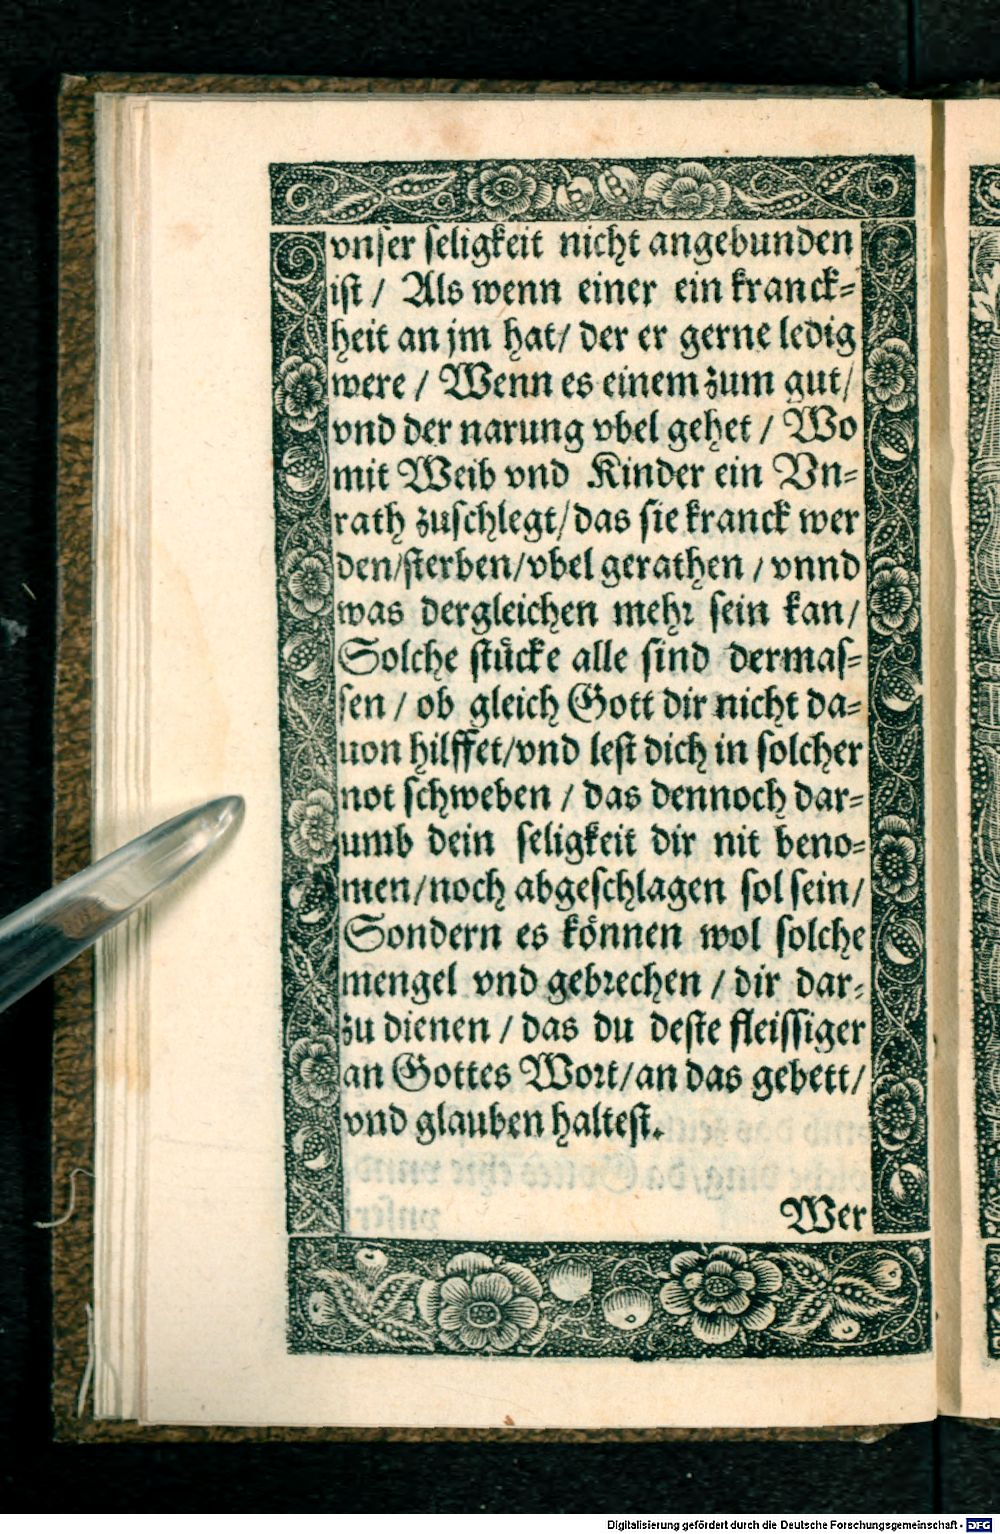 vnser seligkeit nicht angebunden
ist / Als wenn einer ein kranck=
heit an jm hat / der er gerne ledig
were / Wenn es einem zum gut /
vnd der narung vbel gehet / Wo
mit Weib vnd Kinder ein Vn=
rath zuschlegt / das sie kranck wer
den / sterben / vbel gerathen / vnnd
was dergleichen mehr sein kan /
Solche stücke alle sind dermas=
sen / ob gleich Gott dir nicht da=
uon hilffet / vnd lest dich in solcher
not schweben / das dennoch dar=
umb dein seligkeit dir nit beno=
men / noch abgeschlagen sol sein /
Sondern es können wol solche
mengel vnd gebrechen / dir dar=
zu dienen / das du deste fleissiger
an Gottes Wort / an das gebett /
vnd glauben haltest.
Wer
Digitalisierung gefördert durch die Deutsche Forschungsgemeinschaft - DFG